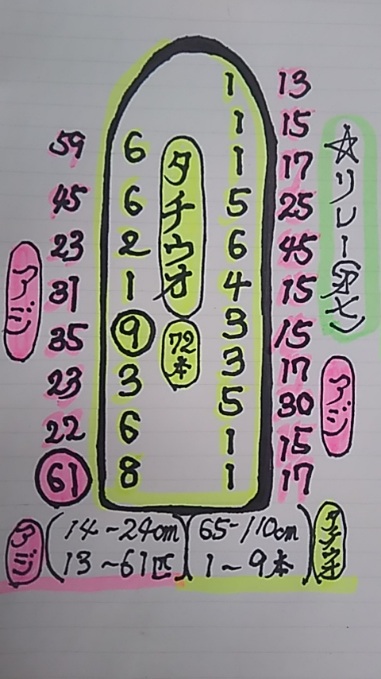 ☆リレー
1 13
1 15
59 6 1 17
45 6 5 25
23 2 6 45
31 1 4 15
35 9 3 15
23 3 3 17
22 6 5 30
61 8 1 15
1 17
タチウオ
72本
アジ
アジ
アジ
14~24cm
13~61匹
65~110cm
1~9本
タチウオ